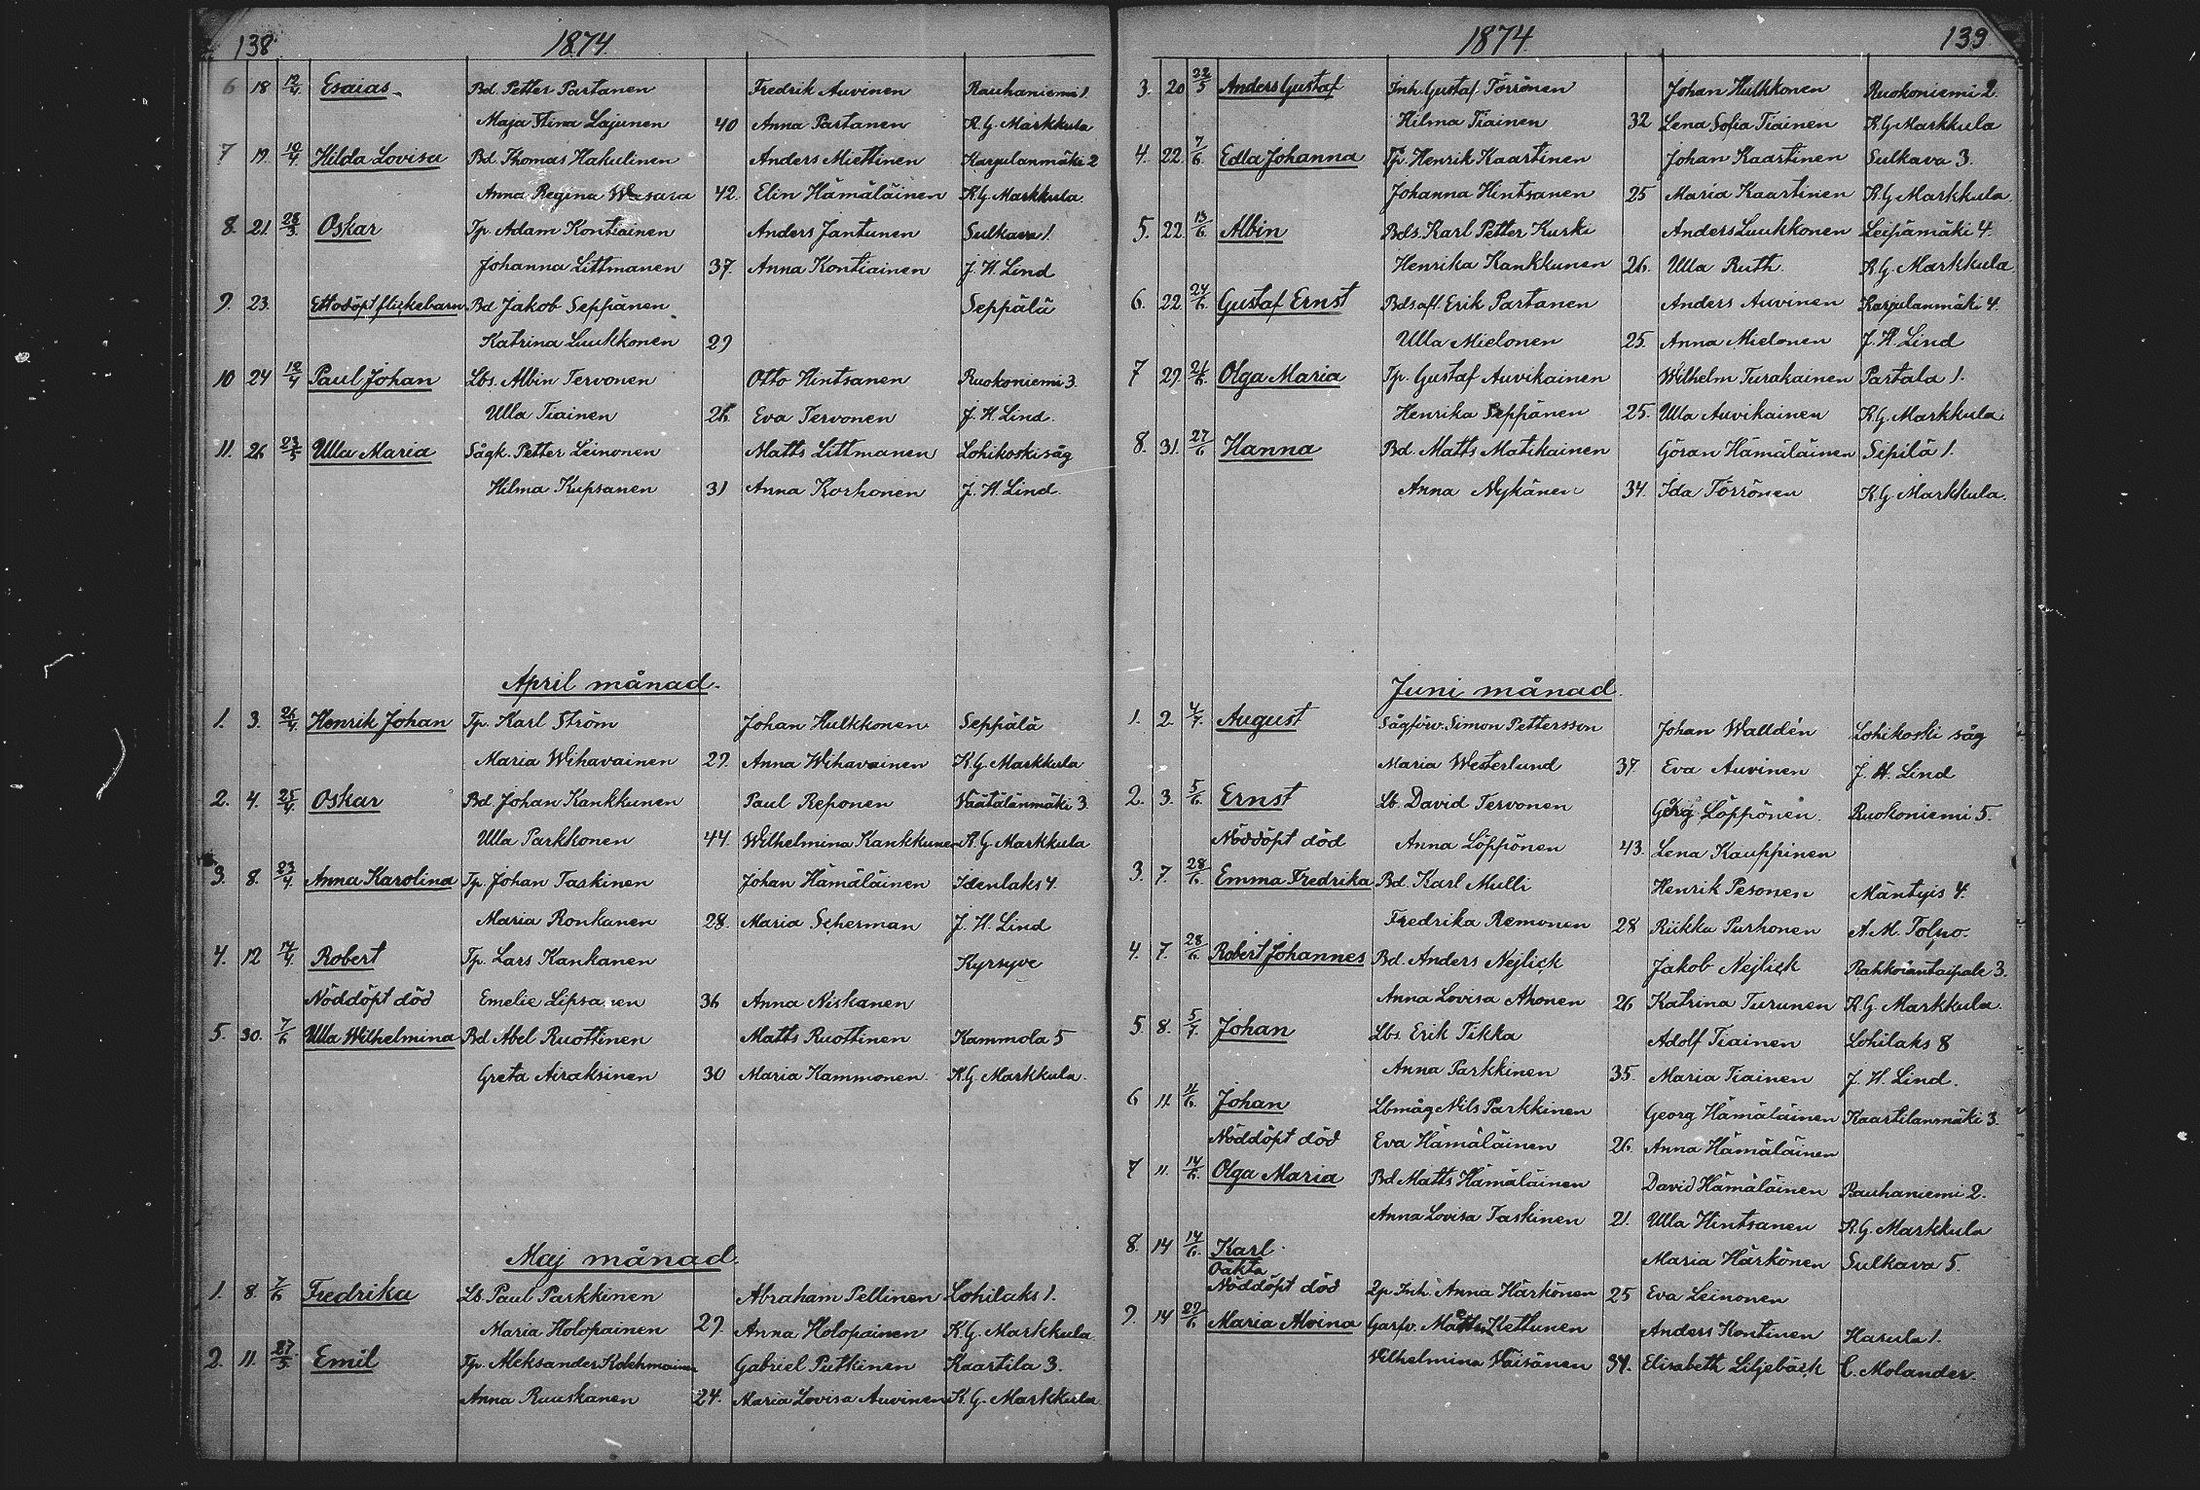 138 1874
6 18 12/4 Esaias Bd. Petter Partanen Fredrik Auvinen Rauhaniemi 1
Maja Stina Lajunen 40 Anna Partanen K. G. Markkula
7 19. 10/4 Hilda Lovisa Bd. Thomas Hakulinen Anders Miettinen Karjulanmäki 2
Anna Regina Wasara 42. Elin Hämäläinen K. G. Markkula.
8. 21. 28/3 Oskar Tp. Adam Kontiainen Anders Jantunen Sulkava 1.
Johanna Littmanen 37. Anna Kontiainen J. H. Lind
9. 23. Ettodöpt flickebarn Bd Jakob Seppänen Seppälä
Katrina Luukkonen 29
10 24 12/4 Paul Johan Lbs. Albin Tervonen Otto Hintsanen Ruokoniemi 3.
Ulla Tiainen 26. Eva Tervonen J. H. Lind.
11. 26 23/5 Ulla Maria Sågk. Petter Leinonen Matts Littmanen Lohikoski såg
Hilma Kupsanen 31 Anna Korhonen J. H. Lind.
April månad.
1. 3. 26/4 Henrik Johan Tp. Karl Ström Johan Hulkkonen Seppälä
Maria Wihavainen 29. Anna Wihavainen K. G. Markkula
2. 4. 25/4 Oskar Bd. Johan Kankkunen Paul Reponen Väätälänmäki 3.
Ulla Parkkonen 44. Wilhelmina Kankkunen K. G. Markkula
3. 8. 23/4 Anna Karolina Tp. Johan Taskinen Johan Hämäläinen Idenlaks 4.
Maria Ronkanen 28. Maria Scherman J. H. Lind
4. 12 14/4 Robert Tp. Lars Kankanen Kyrsyve
Nöddöpt död Emelie Lipsanen 36 Anna Niskanen
5. 30. 7/6 Ulla Wilhelmina Bd Abel Ruottinen Matts Ruottinen Kammola 5
Greta Airaksinen 30 Maria Kammonen. K. G. Markkula.
Maj månad.
1. 8. 7/6 Fredrika Lb. Paul Parkkinen Abraham Pellinen Lohilaks 1.
Maria Holopainen 29. Anna Holopainen K. G. Markkula.
2. 11. 27/5 Emil Tp. Aleksander Kolehmainen Gabriel Putkinen Kaartila 3.
Anna Ruuskanen 24. Maria Lovisa Auvinen K. G. Markkula.
1874 139
3. 20 22/5 Anders Gustaf Inh. Gustaf Törrönen Johan Hulkkonen Ruokoniemi 2.
Hilma Tiainen 32 Lena Sofia Tiainen K. G. Markkula
4. 22. 7/6 Edla Johanna Tp. Henrik Kaartinen Johan Kaartinen Sulkava 3.
Johanna Hintsanen 25 Maria Kaartinen K. G. Markkula.
5. 22. 13/6 Albin Bds. Karl Petter Kurki Anders Luukkonen Leipämäki 4.
Henrika Kankkunen 26. Ulla Ruth. K. G. Markkula.
6. 22. 24/6 Gustaf Ernst Bdsafl. Erik Partanen Anders Auvinen Karjulanmäki 4.
Ulla Mielonen 25. Anna Mielonen J. H. Lind
7 29. 21/6 Olga Maria Tp. Gustaf Auvikainen Wilhelm Turakainen Partala 1.
Henrika Seppänen 25. Ulla Auvikainen K. G. Markkula.
8. 31. 27/6 Hanna Bd. Matts Matikainen Göran Hämäläinen Sipilä 1.
Anna Nykänen 34. Ida Törrönen K. G. Markkula.
Juni månad.
1. 2. 4/7 August Sågförv. Simon Pettersson Johan Walldén Lohikoski såg
Maria Westerlund 37. Eva Auvinen J. H. Lind
2. 3. 5/6 Ernst Lb. David Tervonen Georg Löppönen. Ruokoniemi 5.
Nöddöpt död Anna Löppönen 43. Lena Kauppinen
3. 7. 28/6 Emma Fredrika Bd. Karl Mulli Henrik Pesonen Mäntyis 4.
Fredrika Remonen 28 Riikka Purhonen A. M. Tolpo.
4. 7. 28/6 Robert Johannes Bd. Anders Nejlick Jakob Nejlick Rahkointaipale 3.
Anna Lovisa Ahonen 26 Katrina Turunen K. G. Markkula.
5 8. 5/7 Johan Lbs. Erik Tikka Adolf Tiainen Lohilaks 8
Anna Parkkinen 35. Maria Tiainen J. H. Lind.
6 11. 11/6 Johan Lbmåg Nils Parkkinen Georg Hämäläinen Kaartilanmäki 3.
Nöddöpt död Eva Hämäläinen 26. Anna Hämäläinen
7 11. 14/6 Olga Maria Bd Matts Hämäläinen David Hämäläinen Rauhaniemi 2.
Anna Lovisa Taskinen 21. Ulla Hintsanen K. G. Markkula
8. 14 14/6 Karl. Maria Härkönen Sulkava 5.
Oäkta
Nöddöpt död Lp Inh. Anna Härkönen 25 Eva Leinonen
9. 14 29/6 Maria Alvina Garfv. Matts Kettunen Anders Kontinen Harula 1.
Wilhelmina Väisänen 34. Elisabeth Liljebäck C. Molander.